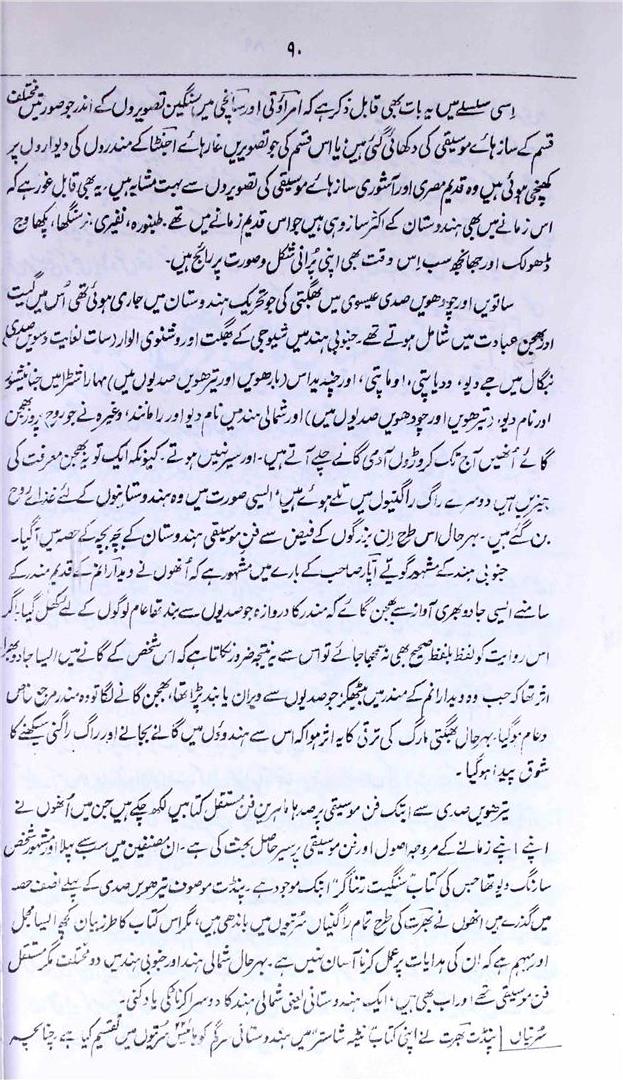 ۹۰
اِسی سلسلے میں یہ بات بھی قابل ذکر ہے کہ امراؤتی اور سانچی میں سنگین تصویروں کے اندر جو صورتیں مختلف
قسم کے سازہائے موسیقی کی دکھائی گئی ہیں یا اس قسم کی جو تصویریں غارہائے اجنٹا کے مندروں کی دیواروں پر
کھنچی ہوئی ہیں وہ قدیم مصری اور آشوری سازہائے موسیقی کی تصویروں سے بہت مشابہ ہیں۔ یہ بھی قابل غور ہے کہ
اس زمانے میں بھی ہندوستان کے اکثر ساز وہی ہیں جو اس قدیم زمانے میں تھے۔ طنبورہ، نفیری، نرسنگھا، پکھاوج
ڈھولک اور جھانجھ سب اس وقت بھی اپنی پُرانی شکل و صورت پر رائج ہیں۔
ساتویں اور چودھویں صدی عیسوی میں بھگتی کی جو تحریک ہندوستان میں جاری ہوئی تھی اُس میں گیت
اور بھجن عبادت میں شامل ہوتے تھے۔ جنوبی ہند میں شیوجی کے بھگت اور وشنوی الوار دسات لغایت دسویں صدی
بنگال میں جے دیو، ودیاپتی، اوماپتی، اور چنڈیداس (بارھویں اور تیرھویں صدیوں میں) مہاراشٹرا میں جنانیشو
اور نام دیو، (تیرھویں اور چودھویں صدیوں میں) اور شمالی ہند میں نام دیو اور رامانند، وغیرہ نے جو روح پرور بھجن
گائے اُنھیں آج تک کروڑوں آدمی گاتے چلے آتے ہیں۔ اور سیر نہیں ہوتے۔ کیونکہ ایک تو یہ بھجن معرفت کی
چیزیں ہیں دوسرے راگ راگنیوں میں تلے ہوئے ہیں، ایسی صورت میں وہ ہندوستانیوں کے لئے غذائے روح
بن گئے ہیں۔ بہرحال اس طرح اِن بزرگوں کے فیض سے فن موسیقی ہندوستان کے بچہ بچہ کے حصہ میں آگیا۔
جنوبی ہند کے مشہور گوئے آپار صاحب کے بارے میں مشہور ہے کہ اُنھوں نے ویدارانم کے قدیم مندر کے
سامنے ایسی جادو بھری آواز سے بھجن گائے کہ مندر کا دروازہ جو صدیوں سے بند تھا عام لوگوں کے لئے کھل گیا۔ اگر
اس روایت کو لفظ بلفظ صحیح بھی نہ سمجھا جائے تو اس سے یہ نتیجہ ضرور نکلتا ہے کہ اس شخص کے گانے میں ایسا جادو بھرا
اثر تھا کہ جب وہ ویدارانم کے مندر میں بیٹھکر جو صدیوں سے ویران یا بند پڑا تھا، بھجن گانے لگا تو وہ مندر مرجع خاص
و عام ہوگیا۔ بہرحال بھگتی مارگ کی ترقی کا یہ اثر ہوا کہ اس سے ہندوؤں میں گانے بجانے اور راگ راگنی سیکھنے کا
شوق پیدا ہوگیا۔
تیرھویں صدی سے ابتک فن موسیقی پر صدہا ماہرین فن مستقل کتابیں لکھ چکے ہیں جن میں اُنھوں نے
اپنے اپنے زمانے کے مروجہ اصول اور فن موسیقی پر سیر حاصل بحث کی ہے۔ ان مصنفین میں سب سے پہلا اور مشہور شخص
سارنگ دیو تھا جس کی کتاب سنگیت رتناگر ابتک موجود ہے۔ پنڈت موصوف تیرھویں صدی کے پہلے نصف حصہ
میں گذرے ہیں انھوں نے بھرت کی طرح تمام راگنیاں سُرتیوں میں باندھی ہیں، مگر اس کتاب کا طرز بیان کچھ ایسا مجمل
اور مبہم ہے کہ اِن کی ہدایات پر عمل کرنا آسان نہیں ہے۔ بہرحال شمالی ہند اور جنوبی ہند میں دو مختلف مگر مستقل
فن موسیقی تھے اور اب بھی ہیں، ایک ہندوستانی یعنی شمالی ہند کا دوسرا کرناٹکی یا دکنی۔
سُرتیاں پنڈت بھرت نے اپنی کتاب نٹیہ شاستر میں ہندوستانی سرگم کو بائیس سُرتیوں میں تقسیم کیا ہے چنانچہ